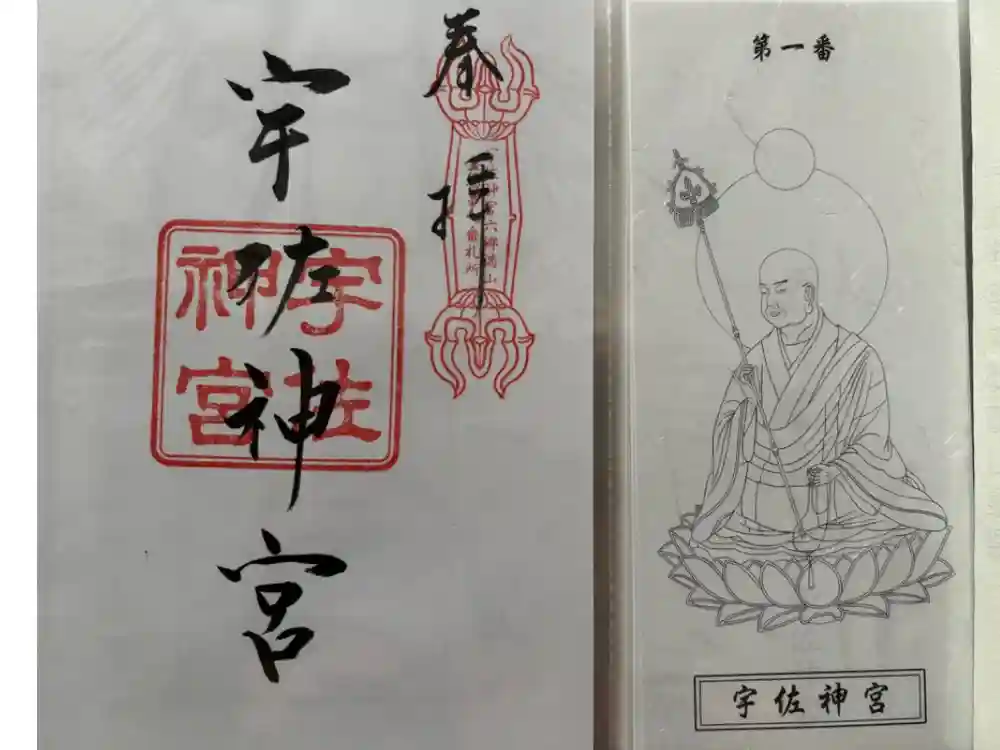 奉拝
宇佐神宮
宇佐
神宮
第一番
宇佐神宮